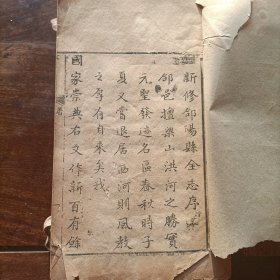 新修郃陽縣全志序
郃邑擅梁山洪河之勝實
元聖發迹名區春秋時子
夏又嘗退居西河則風教
之孕有自來矣我
國
家崇典右文作新百有餘